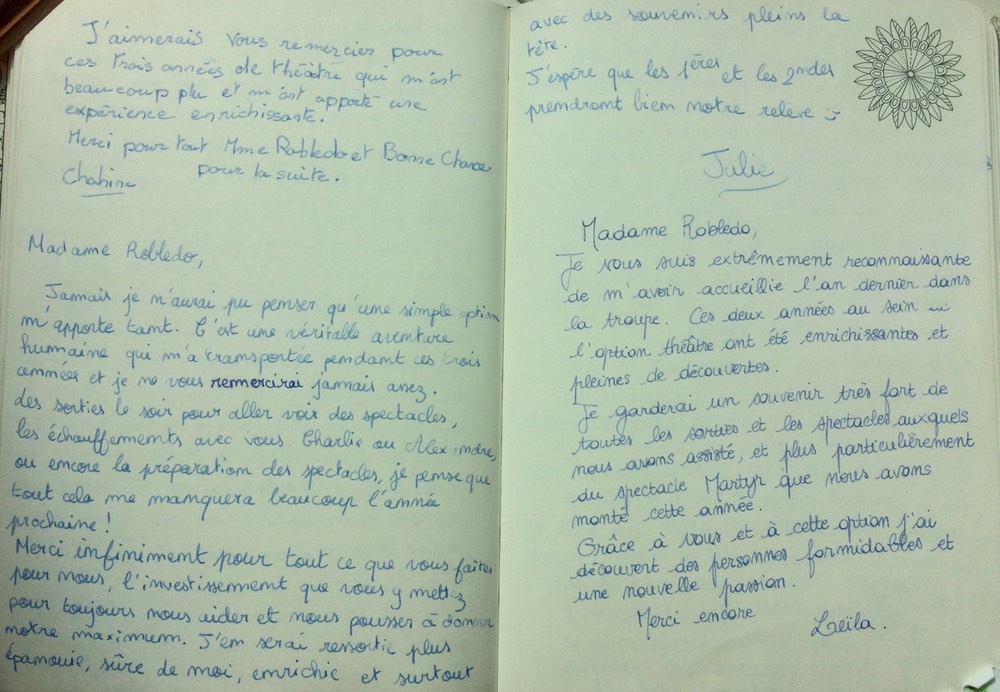 J'aimerais vous remercier pour
ces trois années de théâtre qui m'ont
beaucoup plu et m'ont apporté une
expérience enrichissante.
Merci pour tout Mme Robledo et Bonne Chance
pour la suite.
Chahine
Madame Robledo,
Jamais je n'aurai pu penser qu'une simple option
m'apporte tant. C'est une véritable aventure
humaine qui m'a transportée pendant ces trois
années et je ne vous remercirai jamais assez.
des sorties le soir pour aller voir des spectacles,
les échauffements avec vous Charlie ou Alexandre,
ou encore la préparation des spectacles, je pense que
tout cela me manquera beaucoup l'année
prochaine !
Merci infiniment pour tout ce que vous faites
pour nous, l'investissement que vous y mettez
pour toujours nous aider et nous pousser à donner
notre maximum. J'en serai ressortie plus
épanouie, sûre de moi, enrichie et surtout
avec des souvenirs pleins la
tête.
J'espère que les 1ères et les 2ndes
prendront bien notre relève :)
Julie
Madame Robledo,
Je vous suis extrêmement reconnaissante
de m'avoir accueillie l'an dernier dans
la troupe. Ces deux années au sein
l'option théâtre ont été enrichissantes et
pleines de découvertes.
Je garderai un souvenir très fort de
toutes les sorties et les spectacles auxquels
nous avons assisté, et plus particulièrement
du spectacle Martyr que nous avons
monté cette année.
Grâce à vous et à cette option j'ai
découvert des personnes formidables et
une nouvelle passion.
Merci encore
Leila.